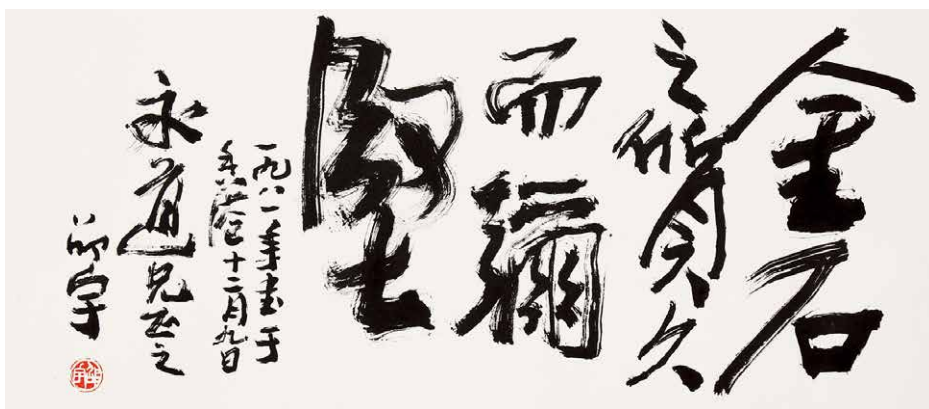 金石
之質久
而彌
堅
一九八一年書于
十二月九日
永道兄正之